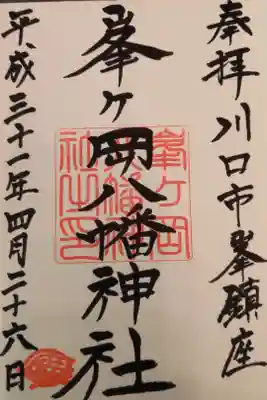 奉拝川口市峯鎮座
峯ヶ岡八幡神社
峯ヶ岡八幡神社之印
平成三十一年四月二十六日